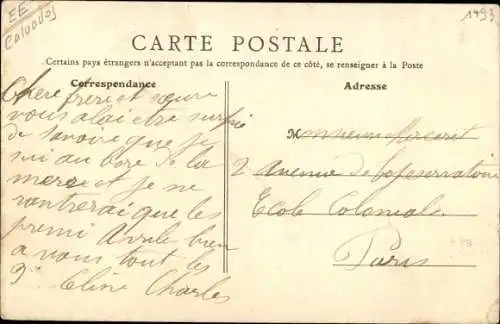 EE
Calvados
1493
CARTE POSTALE
Certains pays étrangers n'acceptant pas la correspondance de ce côté, se renseigner à la Poste
Correspondance
Chere frere et sœure
vous alai etre surpri
de savoire que je
sui au bore de la
mere et je ne
rentrerai que les
premi Avrile bien
a vous tout les
3 Celine Charles
Adresse
Monsieur Merceret
2 Avenue de l'observatoire
Ecole Coloniale
Paris